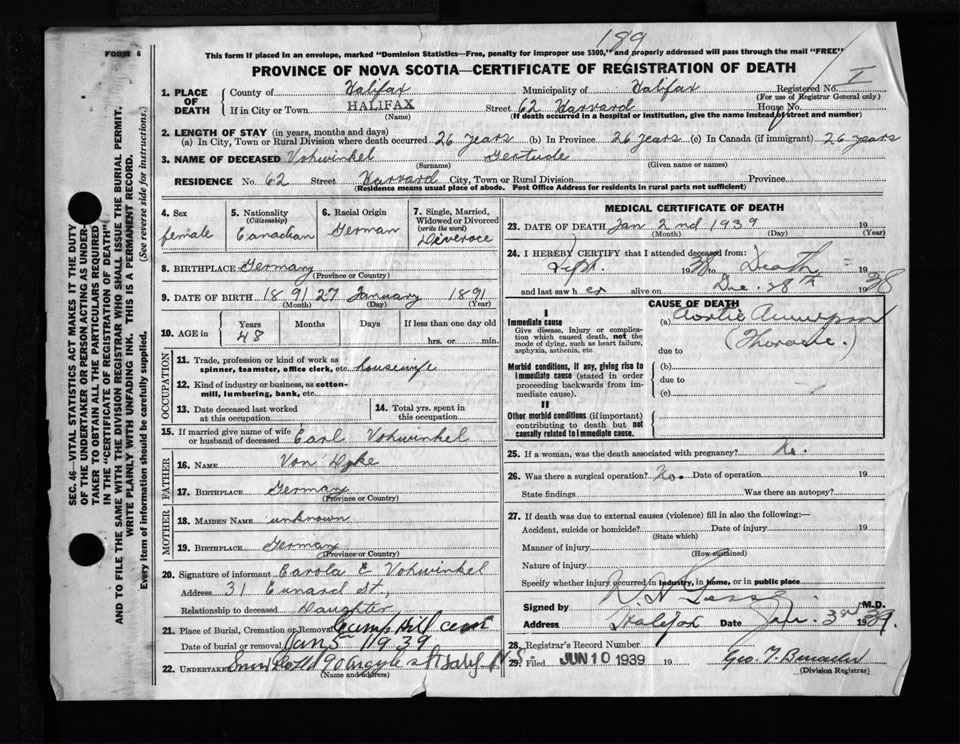 FORM 6
199
This form if placed in an envelope, marked "Dominion Statistics—Free, penalty for improper use $300," and properly addressed will pass through the mail "FREE"
PROVINCE OF NOVA SCOTIA—CERTIFICATE OF REGISTRATION OF DEATH
1. PLACE OF DEATH
County of Halifax Municipality of Halifax Registered No.
(For use of Registrar General only)
If in City or Town HALIFAX Street 62 Harvard House No.
(Name) (If death occurred in a hospital or institution, give the name instead of street and number)
2. LENGTH OF STAY (in years, months and days)
(a) In City, Town or Rural Division where death occurred 26 years (b) In Province 26 years (c) In Canada (if immigrant) 26 years
3. NAME OF DECEASED Vohwinkel Gertude
(Surname) (Given name or names)
RESIDENCE No. 62 Street Harvard City, Town or Rural Division Province
(Residence means usual place of abode. Post Office Address for residents in rural parts not sufficient)
4. Sex
female
5. Nationality
(Citizenship)
Canadian
6. Racial Origin
German
7. Single, Married, Widowed or Divorced
(write the word)
Diveroce
8. BIRTHPLACE Germany
(Province or Country)
9. DATE OF BIRTH 1891 27 January 1891
(Month) (Day) (Year)
10. AGE in
Years Months Days If less than one day
48 hrs. or min.
OCCUPATION
11. Trade, profession or kind of work as spinner, teamster, office clerk, etc. housewife
12. Kind of industry or business, as cotton-mill, lumbering, bank, etc.
13. Date deceased last worked at this occupation
14. Total yrs. spent in this occupation
15. If married give name of wife or husband of deceased Earl Vohwinkel
FATHER
16. NAME Von Dyke
17. BIRTHPLACE Germany
(Province or Country)
MOTHER
18. MAIDEN NAME unknown
19. BIRTHPLACE Germany
(Province or Country)
20. Signature of informant Carola E Vohwinkel
Address 31 Cunard St.,
Relationship to deceased Daughter
21. Place of Burial, Cremation or Removal Camp Hill cem
Date of burial or removal Jan 5 1939
22. UNDERTAKER Snow 90 Argyle St N.S.
(Name and address)
MEDICAL CERTIFICATE OF DEATH
23. DATE OF DEATH Jan 2nd 1939
(Month) (Day) (Year)
24. I HEREBY CERTIFY that I attended deceased from:
Sept. 1938 to Death 19
and last saw her alive on Dec. 28th 1938
CAUSE OF DEATH
I
Immediate cause
Give disease, injury or complication which caused death, not the mode of dying, such as heart failure, asphyxia, asthenia, etc
(a) Aortic Aneurysm
(Thoracic.)
due to
Morbid conditions, if any, giving rise to immediate cause (stated in order proceeding backwards from immediate cause).
(b)
due to
(c)
II
Other morbid conditions (if important) contributing to death but not causally related to immediate cause.
25. If a woman, was the death associated with pregnancy? No.
26. Was there a surgical operation? No. Date of operation 19
State findings Was there an autopsy?
27. If death was due to external causes (violence) fill in also the following:—
Accident, suicide or homicide? Date of injury 19
(State which)
Manner of injury
(How sustained)
Nature of injury
Specify whether injury occurred in industry, in home, or in public place
Signed by M.D.
Address Halifax Date Jan. 3rd 1939.
28. Registrar's Record Number
29. Filed JUN 10 1939 19
(Division Registrar)
SEC. 46—VITAL STATISTICS ACT MAKES IT THE DUTY
OF THE UNDERTAKER OR PERSON ACTING AS UNDERTAKER TO OBTAIN ALL THE PARTICULARS REQUIRED
IN THE "CERTIFICATE OF REGISTRATION OF DEATH"
AND TO FILE THE SAME WITH THE DIVISION REGISTRAR WHO SHALL ISSUE THE BURIAL PERMIT.
WRITE PLAINLY WITH UNFADING INK. THIS IS A PERMANENT RECORD.
Every item of information should be carefully supplied. (See reverse side for instructions.)